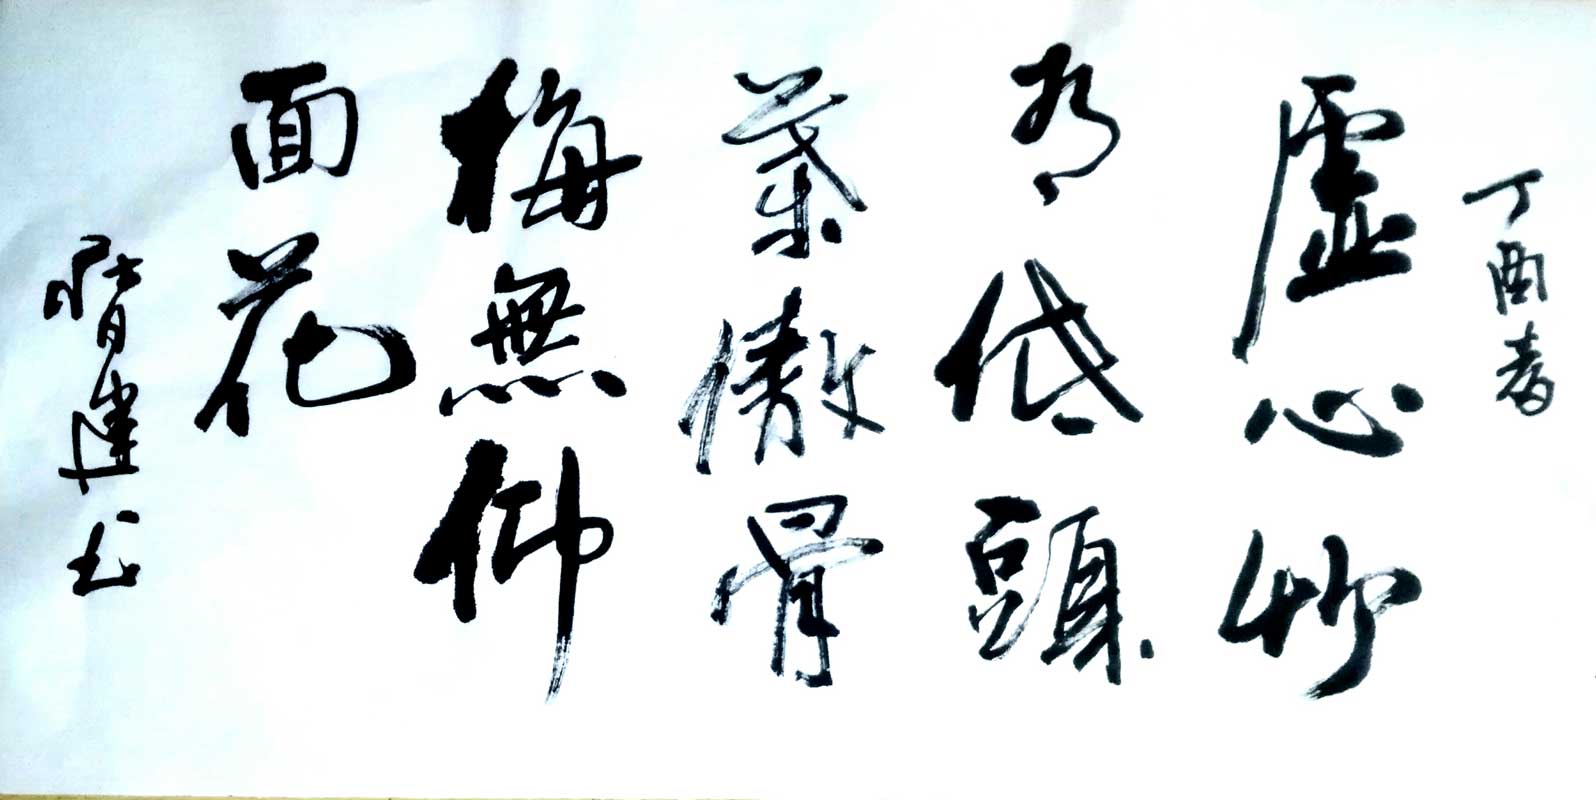 丁酉春
虚心竹
有低頭
葉傲骨
梅無仰
面花
建书